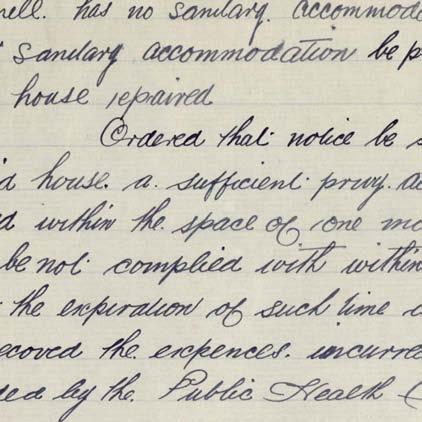 nell. has no sanitary. accommoda
sanitary accommodation be p
house repaired
Ordered that notice be s
d house. a. sufficient privy. a
d within the space of one mo
be not complied with within
the expiration of such time
recoved the expences. incurre
ded by the. Public Health (